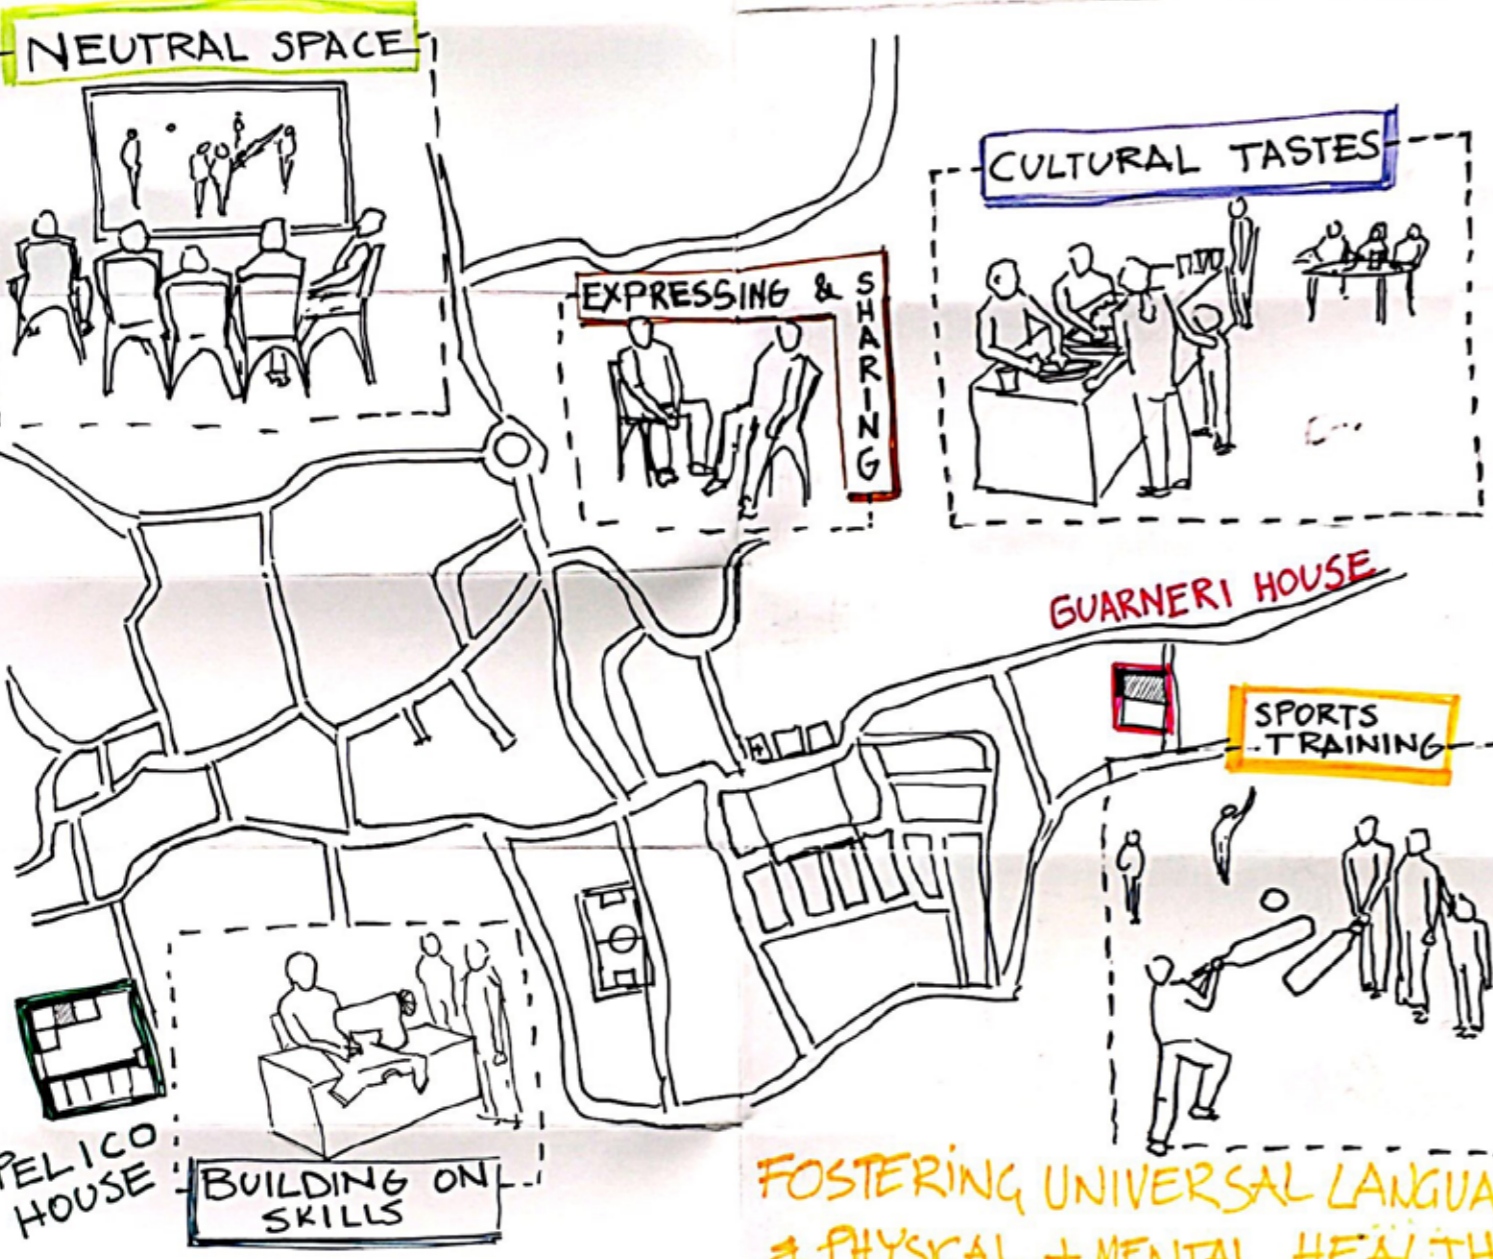 NEUTRAL SPACE
CULTURAL TASTES
EXPRESSING & SHARING
GUARNERI HOUSE
SPORTS
TRAINING
PELICO
HOUSE
BUILDING ON
SKILLS
FOSTERING UNIVERSAL LANGUA
PHYSICAL + MENTAL HEALTH